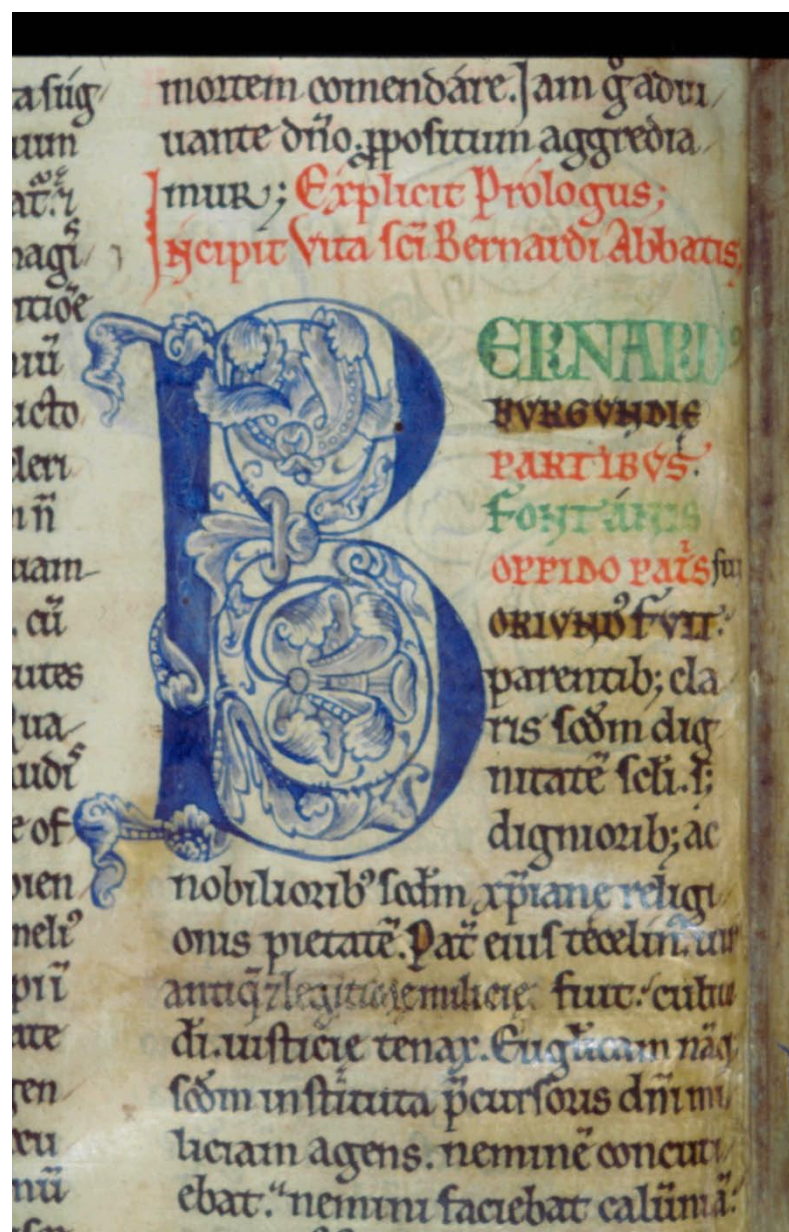 ta sug
uum
nagi
ntiōe
niū
ucto
leri
n n̄
uam
. cū
utes
Qua
udi
e of
bien
meli⁹
pii
ate
gen
nū
mortem comendare. Jam g̊ adiu
uante dn̄o. ꝓpositum aggredia
mur; Explicit Prologus;
Incipit Vita sc̄i Bernardi Abbatis,
BERNARD⁹
BURGUNDIE
PARTIBUS.
FONTANIS
OPPIDO PAT̄S
ORIUND⁹ FUIT.
parentib; cla
ris scd̄m dig
nitatē scl̄i. s;
digniorib; ac
nobiliorib⁹ scd̄m xp̄iane religi
onis pietatē. Pat̄ eius tecelin⁹. uir
antiq̄ ⁊ legitime milicie fuit. cultor
dī. iusticie tenax. Eug̅licam nāq;
scd̄m instituta p̄cursoris dn̄i mi
liciam agens. neminē concuti
ebat. nemini faciebat calūniā.